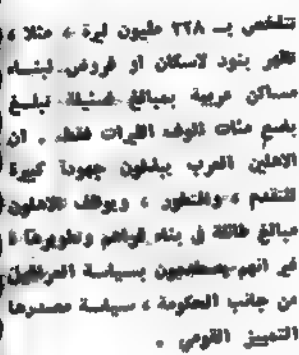 تتلخص بـ ٢٢٨ مليون ليرة ، مثلا ،
تظهر بنود لاسكان او قروض لبناء
مساكن عربية بمبالغ ضئيلة تبلغ
بضع مئات الوف الليرات فقط . ان
الاهلين العرب يبذلون جهودا كبيرة
للتقدم والتطور ، ويوظف الاهلون
مبالغ طائلة في بناء قراهم وتطويرها
غير انهم يصطدمون بسياسة العراقيل
من جانب الحكومة ، سياسة مصدرها
التمييز القومي .